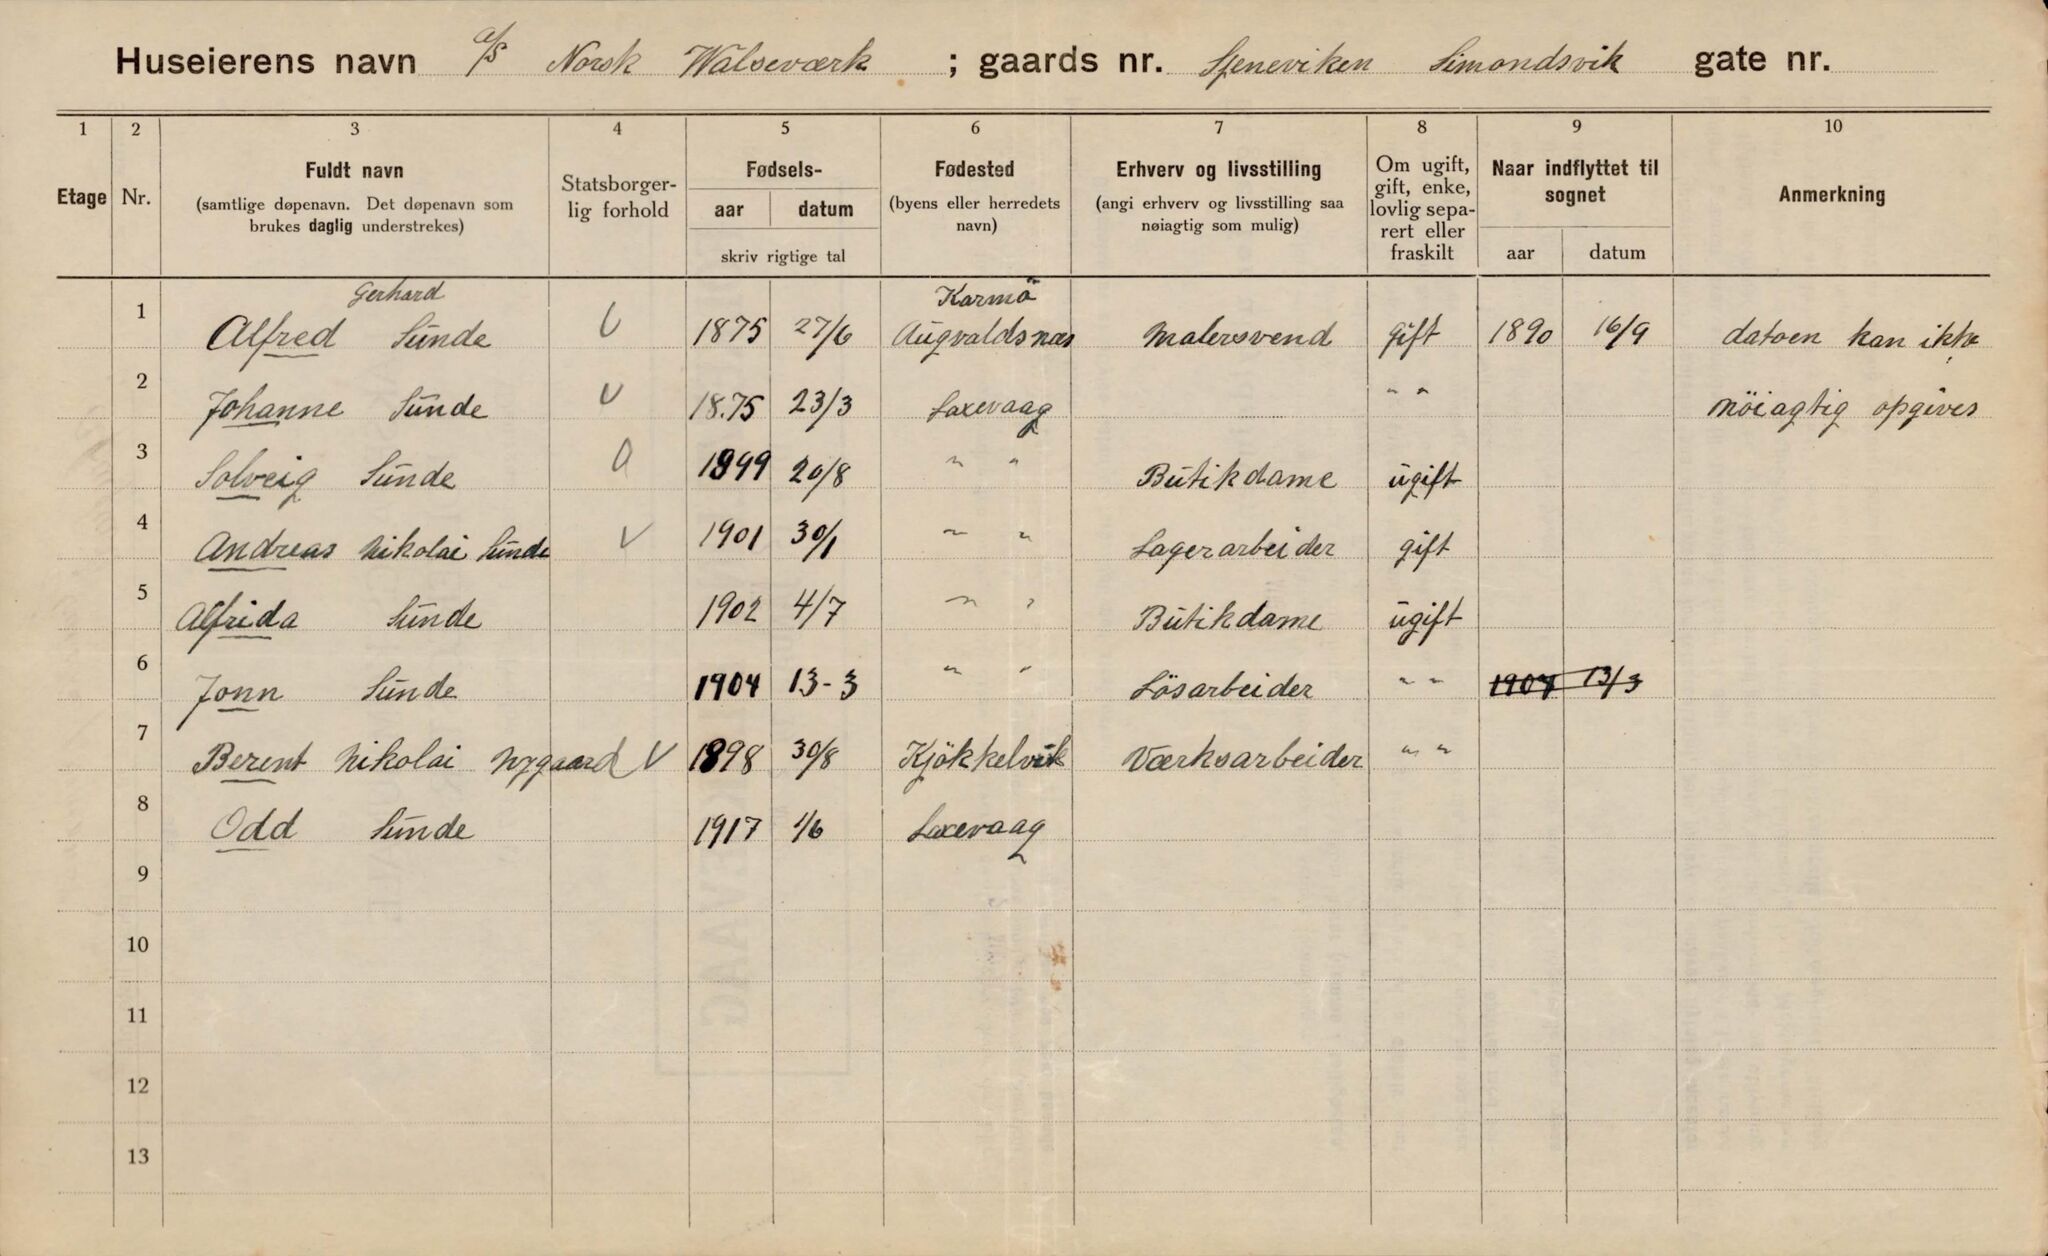 Huseierens navn a/s Norsk Walseværk ; gaards nr. Steneviken Simondsvik gate nr.
1 2 3 4 5 6 7 8 9 10
Etage Nr. Fuldt navn (samtlige døpenavn. Det døpenavn som brukes daglig understrekes) Statsborgerlig forhold Fødsels- aar datum skriv rigtige tal Fødested (byens eller herredets navn) Erhverv og livsstilling (angi erhverv og livsstilling saa nøiagtig som mulig) Om ugift, gift, enke, lovlig separert eller fraskilt Naar indflyttet til sognet aar datum Anmerkning
1 Alfred Gerhard Sunde 1875 27/6 Karmö Augvaldsnæs Malersvend gift 1890 16/9 datoen kan ikke
2 Johanne Sunde 18.75 23/3 Laxevaag " " nöiagtig opgives
3 Solveig Sunde 1899 20/8 " " Butikdame ugift
4 Andreas Nikolai Sunde 1901 30/1 " " Lagerarbeider gift
5 Alfrida Sunde 1902 4/7 " " Butikdame ugift
6 Jonn Sunde 1904 13-3 " " Lösarbeider " " 1904 13/3
7 Berent Nikolai Nygaard 1898 30/8 Kjökkelvik Værksarbeider " "
8 Odd Sunde 1917 1/6 Laxevaag
9
10
11
12
13